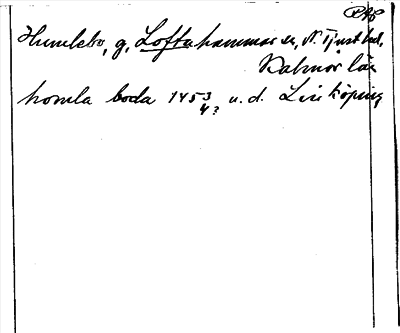 PAP
Humlebo, g, Loftahammar sn, N. Tjust hd,
Kalmar län
homla boda 1453 u. d. Linköping
4?